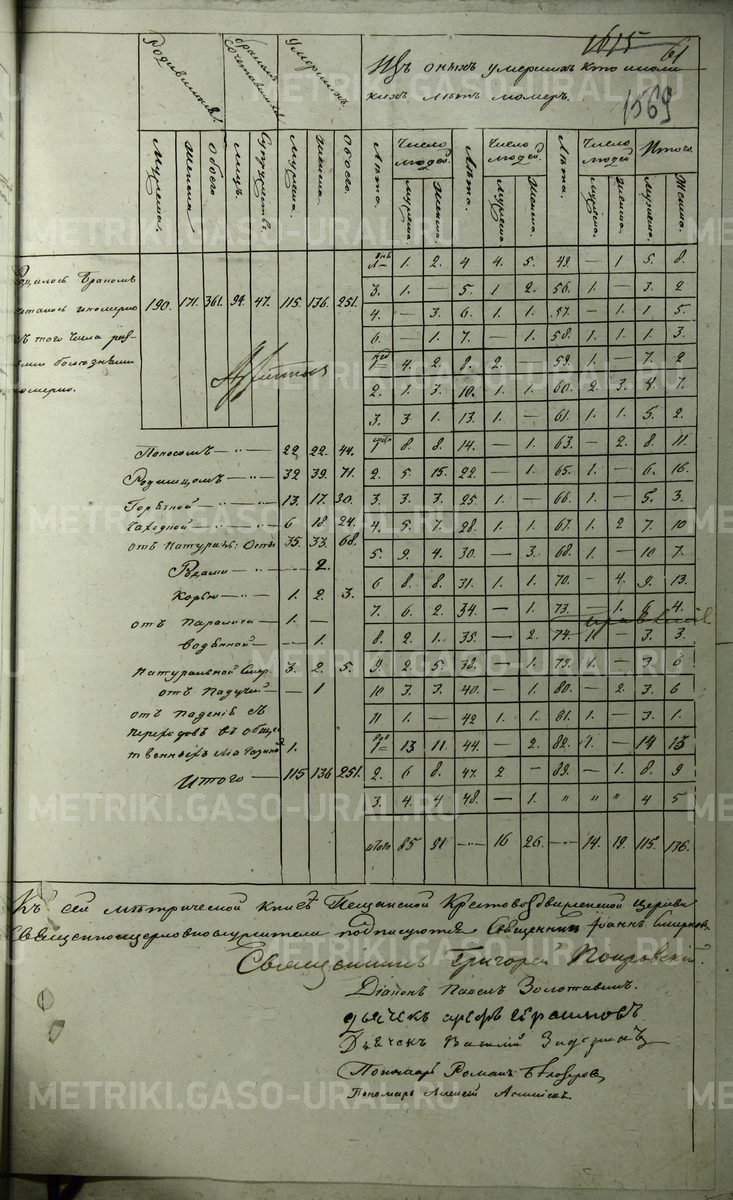 1615
61
1569
Родившихся.
бракомъ сочетавшихся
Умершихъ.
Изъ оныхъ умершихъ кто
кихъ лѣтъ померъ.
Мужеска.
Женска
обоего
Лицъ.
Супружествъ.
Мужеска.
Женска.
Обоего.
Лѣта.
Число людей.
Мужеска.
Женска.
Лѣта.
Число людей.
Мужеска.
Женска.
Лѣта.
Число людей
Мужеска.
Женска.
Итого.
Мужеска.
Женска.
190. 171. 361. 94. 47. 115. 136. 251.
1. 2. 4 4. 5. 49. — 1 5. 8.
3. 1. — 5. 1 2. 56. 1. — 3. 2
4. — 3. 6. 1. 1. 57. — 1. 1 5.
6. — 1. 7. — 1. 58. 1. 1. 1. 3.
4. 2. 8. 2. 59. 1. — 7. 2
2. 1. 3. 10. 1. 1. 60. 2. 3. 4. 7.
3. 3 1. 13. 1. — 61. 1. 1. 5. 2.
8. 8. 14. — 1. 63. — 2. 8. 11.
2. 5. 15. 22. — 1. 65. 1. — 6. 16.
3. 3. 3. 25 1. — 66. 1. — 5. 3.
4. 5. 7. 28. 1. 1. 67. 1. 2 7. 10
5. 9. 4. 30. — 3. 68. 1. — 10 7.
6 8. 8. 31. 1. 1. 70. — 4. 9. 13.
7. 6. 2. 34. — 1. 73. — 1. 6. 4.
8. 2. 1. 35. — 2. 74. 1. — 3. 3.
9. 2. 5. 38. — 1. 75. 1. — 3. 6
10 3. 3. 40. — 1. 80. — 2. 3. 6
11 1. — 42 1. 1. 81. 1. — 3. 1.
13 11. 44. — 2. 82. 1. — 14 13
2. 6 8. 47. 2 — 89. — 1. 8. 9
3. 4. 4 48. — 1. " " " 4 5
Итого 85 91 — 16 26. — 14. 19. 115. 136.
померло.
Поносомъ — 22. 22. 44.
Родимцомъ — 32. 39. 71.
Горячкой — 13. 17. 30.
Чахоткой — 6 18 24.
отъ Натураль: Оспы 35. 33. 68.
Родами — 2.
Корью — 1. 2. 3.
отъ Паралича — 1. —
водяной — 1.
Натуральной Смер. 3. 2. 5.
отъ Падучей — 1
отъ Паденія съ
переходовъ въ общес
твенныхъ Магазиной 1.
Итого — 115 136 251.
Къ сей метрической книгѣ Песчанской Крестовоздвиженской Церкви
Священноцерковнослужители подписуются Священникъ Іоаннъ Смирнов
Священникъ Григорей Покровскій.
Діаконъ Павелъ Золотавинъ.
Дьячекъ Василій
Пономарь Романъ
Пономарь Алексей
METRIKI.GASO-URAL.RU